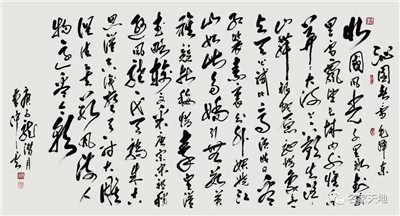 沁园春雪 毛泽东
北國風光千里冰封萬
里雪飄望長城內外惟餘
莽莽大河上下頓失滔滔
山舞銀蛇原馳蠟象欲與
天公試比高須晴日看
紅裝素裹分外妖嬈江
山如此多嬌引無數英
雄競折腰惜秦皇漢武
略輸文采唐宗宋祖稍
遜風騷一代天驕成吉
思汗只識彎弓射大雕
俱往矣數風流人
物還看今朝
庚子龍潛月
名家天地